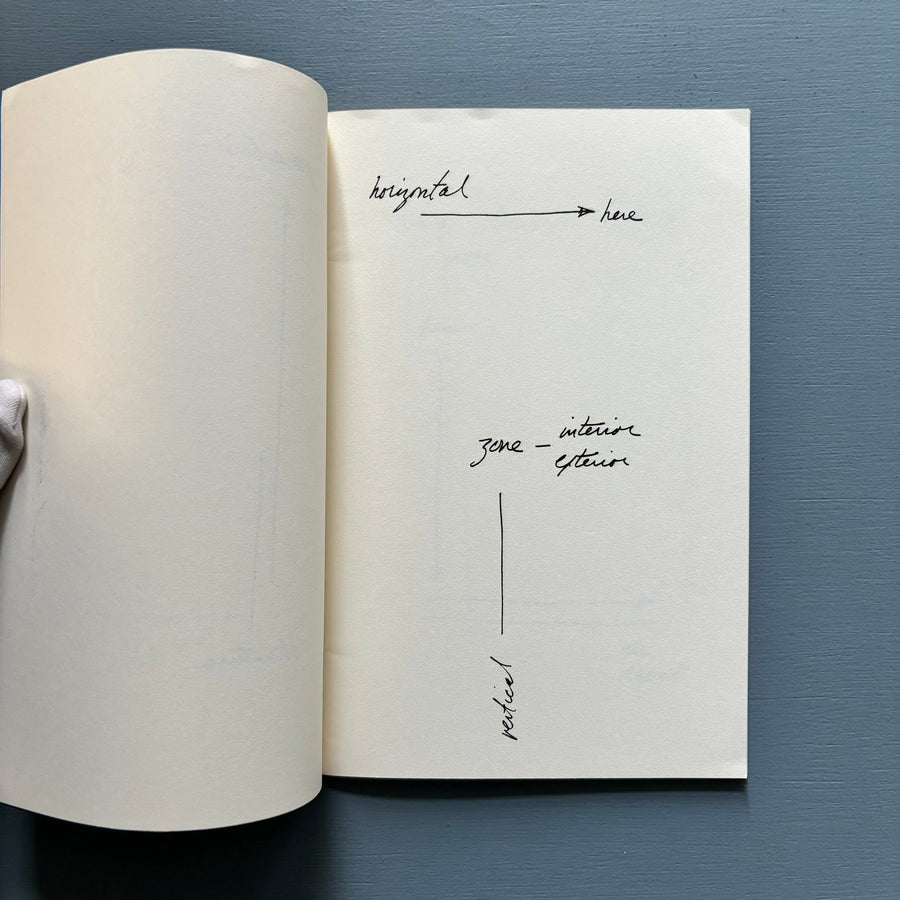 horizontal
here
zone – interior
exterior
vertical